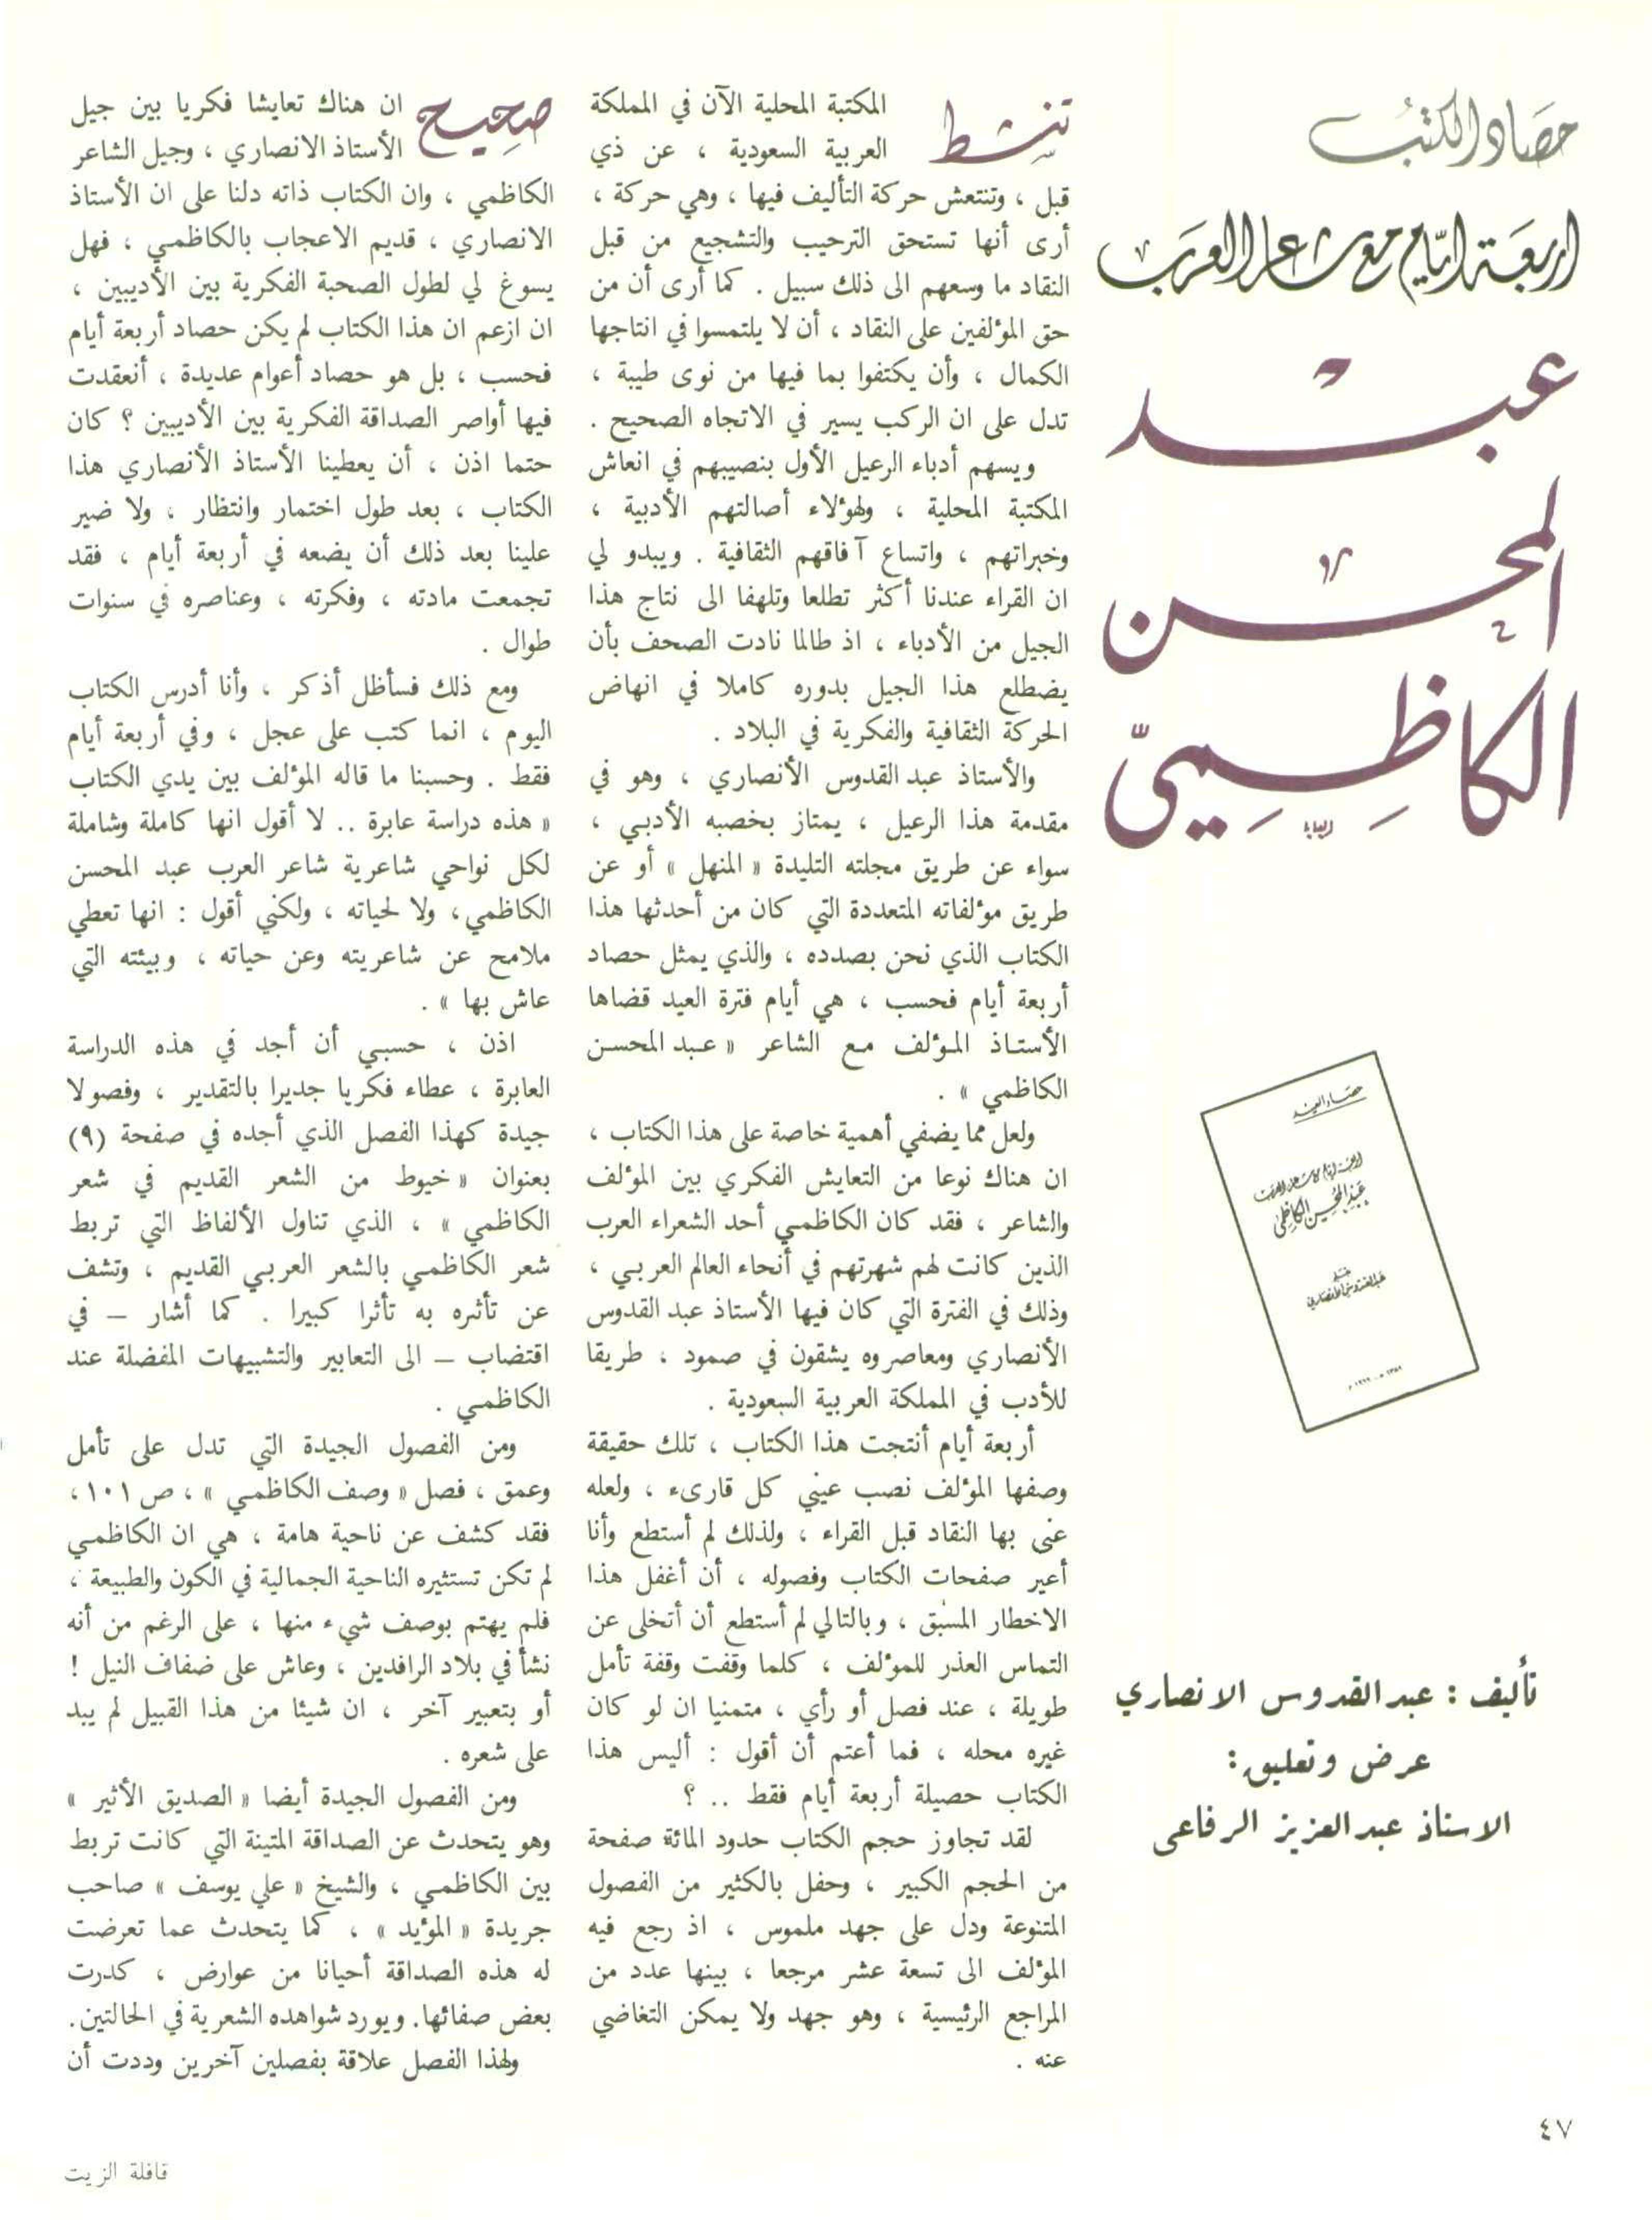 حصاد الكتب
اربعة ايام مع شاعر العرب
عبد
المحسن
الكاظمي
حصاد العيد
اربعة ايام مع شاعر العرب
عبد المحسن الكاظمي
بقلم
عبد القدوس الانصاري
تأليف : عبد القدوس الانصاري
عرض وتعليق :
الاستاذ عبد العزيز الرفاعى
تنشط المكتبة المحلية الآن في المملكة
العربية السعودية ، عن ذي
قبل ، وتنتعش حركة التأليف فيها ، وهي حركة ،
أرى أنها تستحق الترحيب والتشجيع من قبل
النقاد ما وسعهم الى ذلك سبيل . كما أرى أن من
حق المؤلفين على النقاد ، أن لا يلتمسوا في انتاجها
الكمال ، وأن يكتفوا بما فيها من نوى طيبة ،
تدل على ان الركب يسير في الاتجاه الصحيح .
ويسهم أدباء الرعيل الأول بنصيبهم في انعاش
المكتبة المحلية ، ولهؤلاء أصالتهم الأدبية ،
وخبراتهم ، واتساع آفاقهم الثقافية . ويبدو لي
ان القراء عندنا أكثر تطلعا وتلهفا الى نتاج هذا
الجيل من الأدباء ، اذ طالما نادت الصحف بأن
يضطلع هذا الجيل بدوره كاملا في انهاض
الحركة الثقافية والفكرية في البلاد .
والأستاذ عبد القدوس الأنصاري ، وهو في
مقدمة هذا الرعيل ، يمتاز بخصبه الأدبي ،
سواء عن طريق مجلته التليدة « المنهل » أو عن
طريق مؤلفاته المتعددة التي كان من أحدثها هذا
الكتاب الذي نحن بصدده ، والذي يمثل حصاد
أربعة أيام فحسب ، هي أيام فترة العيد قضاها
الأستاذ المؤلف مع الشاعر « عبد المحسن
الكاظمي » .
ولعل مما يضفي أهمية خاصة على هذا الكتاب ،
ان هناك نوعا من التعايش الفكري بين المؤلف
والشاعر ، فقد كان الكاظمي أحد الشعراء العرب
الذين كانت لهم شهرتهم في أنحاء العالم العربي ،
وذلك في الفترة التي كان فيها الأستاذ عبد القدوس
الأنصاري ومعاصروه يشقون في صمود ، طريقا
للأدب في المملكة العربية السعودية .
أربعة أيام أنتجت هذا الكتاب ، تلك حقيقة
وصفها المؤلف نصب عيني كل قارىء ، ولعله
عنى بها النقاد قبل القراء ، ولذلك لم أستطع وأنا
أعبر صفحات الكتاب وفصوله ، أن أغفل هذا
الاخطار المسبق ، وبالتالي لم أستطع أن أتخلى عن
التماس العذر للمؤلف ، كلما وقفت وقفة تأمل
طويلة ، عند فصل أو رأي ، متمنيا ان لو كان
غيره محله ، فما أعتم أن أقول : أليس هذا
الكتاب حصيلة أربعة أيام فقط .. ؟
لقد تجاوز حجم الكتاب حدود المائة صفحة
من الحجم الكبير ، وحفل بالكثير من الفصول
المتنوعة ودل على جهد ملموس ، اذ رجع فيه
المؤلف الى تسعة عشر مرجعا ، بينها عدد من
المراجع الرئيسية ، وهو جهد ولا يمكن التغاضي
عنه .
صحيح ان هناك تعايشا فكريا بين جيل
الأستاذ الانصاري ، وجيل الشاعر
الكاظمي ، وان الكتاب ذاته دلنا على ان الأستاذ
الانصاري ، قديم الاعجاب بالكاظمي ، فهل
يسوغ لي لطول الصحبة الفكرية بين الأديبين ،
ان ازعم ان هذا الكتاب لم يكن حصاد أربعة أيام
فحسب ، بل هو حصاد أعوام عديدة ، أنعقدت
فيها أواصر الصداقة الفكرية بين الأديبين ؟ كان
حتما اذن ، أن يعطينا الأستاذ الأنصاري هذا
الكتاب ، بعد طول اختمار وانتظار ، ولا ضير
علينا بعد ذلك أن يضعه في أربعة أيام ، فقد
تجمعت مادته ، وفكرته ، وعناصره في سنوات
طوال .
ومع ذلك فسأظل أذكر ، وأنا أدرس الكتاب
اليوم ، انما كتب على عجل ، وفي أربعة أيام
فقط . وحسبنا ما قاله المؤلف بين يدي الكتاب
« هذه دراسة عابرة .. لا أقول انها كاملة وشاملة
لكل نواحي شاعرية شاعر العرب عبد المحسن
الكاظمي ، ولا لحياته ، ولكني أقول : انها تعطي
ملامح عن شاعريته وعن حياته ، وبيئته التي
عاش بها » .
اذن ، حسبي أن أجد في هذه الدراسة
العابرة ، عطاء فكريا جديرا بالتقدير ، وفصولا
جيدة كهذا الفصل الذي أجده في صفحة (٩)
بعنوان « خيوط من الشعر القديم في شعر
الكاظمي » ، الذي تناول الألفاظ التي تربط
شعر الكاظمي بالشعر العربي القديم ، وتشف
عن تأثره به تأثرا كبيرا . كما أشار – في
اقتضاب – الى التعابير والتشبيهات المفضلة عند
الكاظمي .
ومن الفصول الجيدة التي تدل على تأمل
وعمق ، فصل « وصف الكاظمي » ، ص ١٠١ ،
فقد كشف عن ناحية هامة ، هي ان الكاظمي
لم تكن تستثيره الناحية الجمالية في الكون والطبيعة ،
فلم يهتم بوصف شيء منها ، على الرغم من أنه
نشأ في بلاد الرافدين ، وعاش على ضفاف النيل !
أو بتعبير آخر ، ان شيئا من هذا القبيل لم يبد
على شعره .
ومن الفصول الجيدة أيضا « الصديق الأثير »
وهو يتحدث عن الصداقة المتينة التي كانت تربط
بين الكاظمي ، والشيخ « علي يوسف » صاحب
جريدة « المؤيد » ، كما يتحدث عما تعرضت
له هذه الصداقة أحيانا من عوارض ، كدرت
بعض صفائها. ويورد شواهده الشعرية في الحالتين .
ولهذا الفصل علاقة بفصلين آخرين وددت أن
٤٧
قافلة الزيت